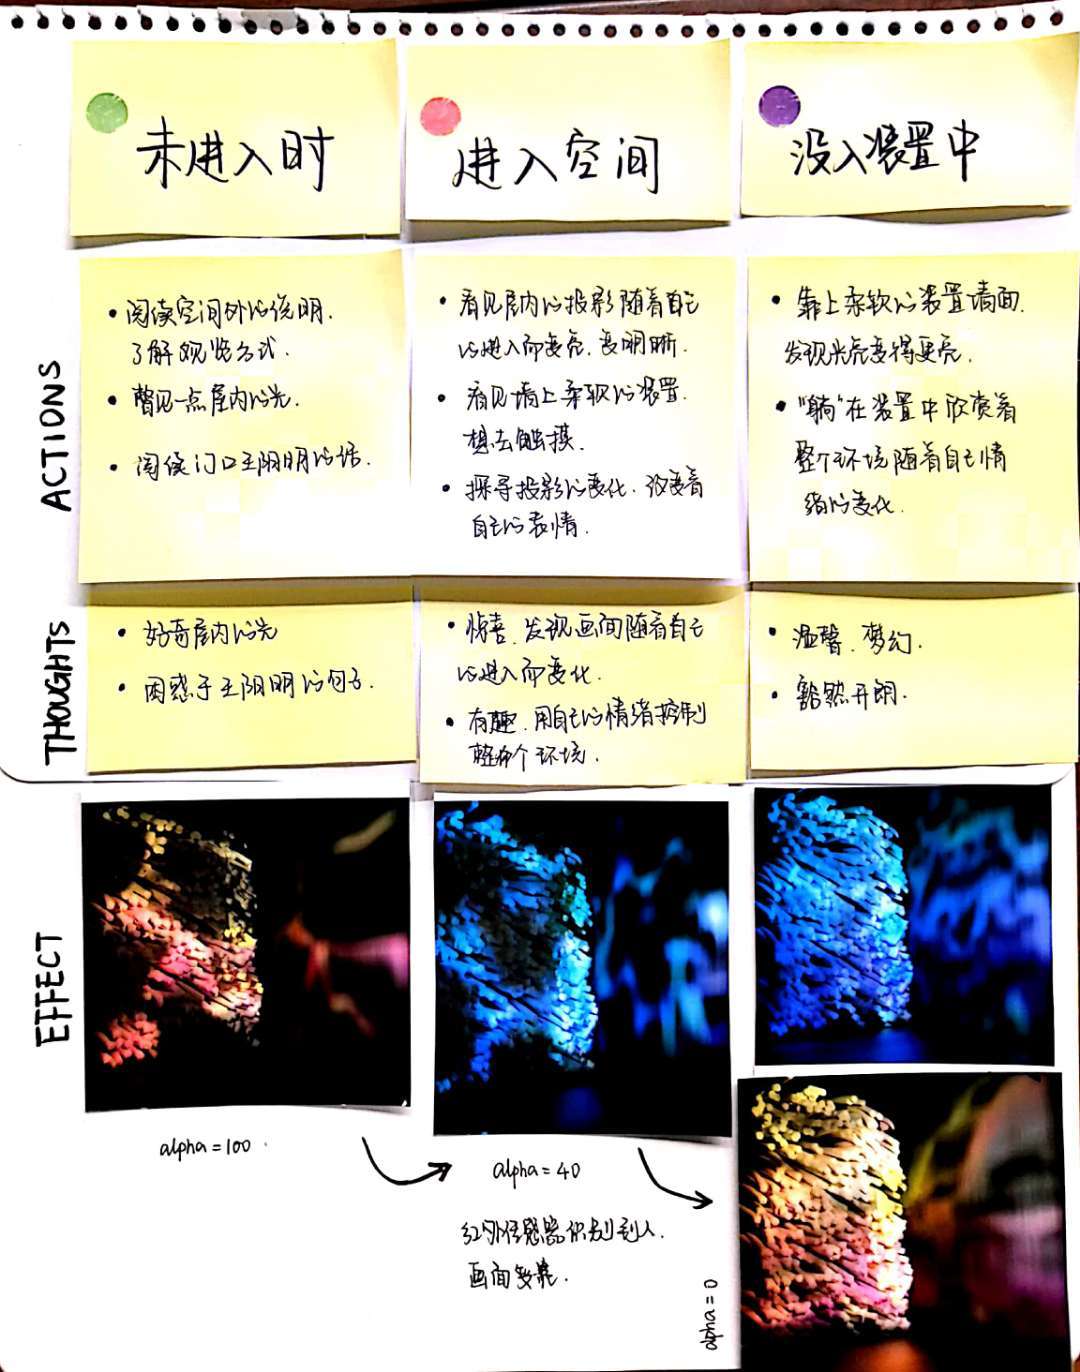 未进入时
进入空间
没入装置中
ACTIONS
• 阅读空间外的说明.
了解观览方式.
• 瞥见一点屋内的光.
• 阅读门口王阳明的话.
• 看见屋内的投影随着自己
的进入而变亮.变明晰.
• 看见墙上柔软的装置.
想去触摸.
• 探寻投影的变化.改变着
自己的表情.
• 靠上柔软的装置墙面.
发现光亮变得更亮.
• "躺"在装置中欣赏着
整个环境随着自己情
绪的变化.
THOUGHTS
• 好奇屋内的光
• 困惑于王阳明的句子.
• 惊喜.发现画面随着自己
的进入而变化.
• 有趣.用自己的情绪控制
整个环境.
• 温馨.梦幻.
• 豁然开朗.
EFFECT
alpha=100
alpha=40
红外传感器识别到人.
画面变亮.
alpha=0